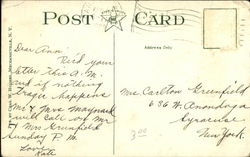 POST CARD
Dear Ann
Rec'd your
letter this A.M.
and if nothing
happens
Mr & Mrs Maynard
will call on Mr
& Mrs Greenfield
Sunday P.M.
Love
Kate
Mrs Carlton Greenfield
636 W. Onondaga
Syracuse
New York
3.00